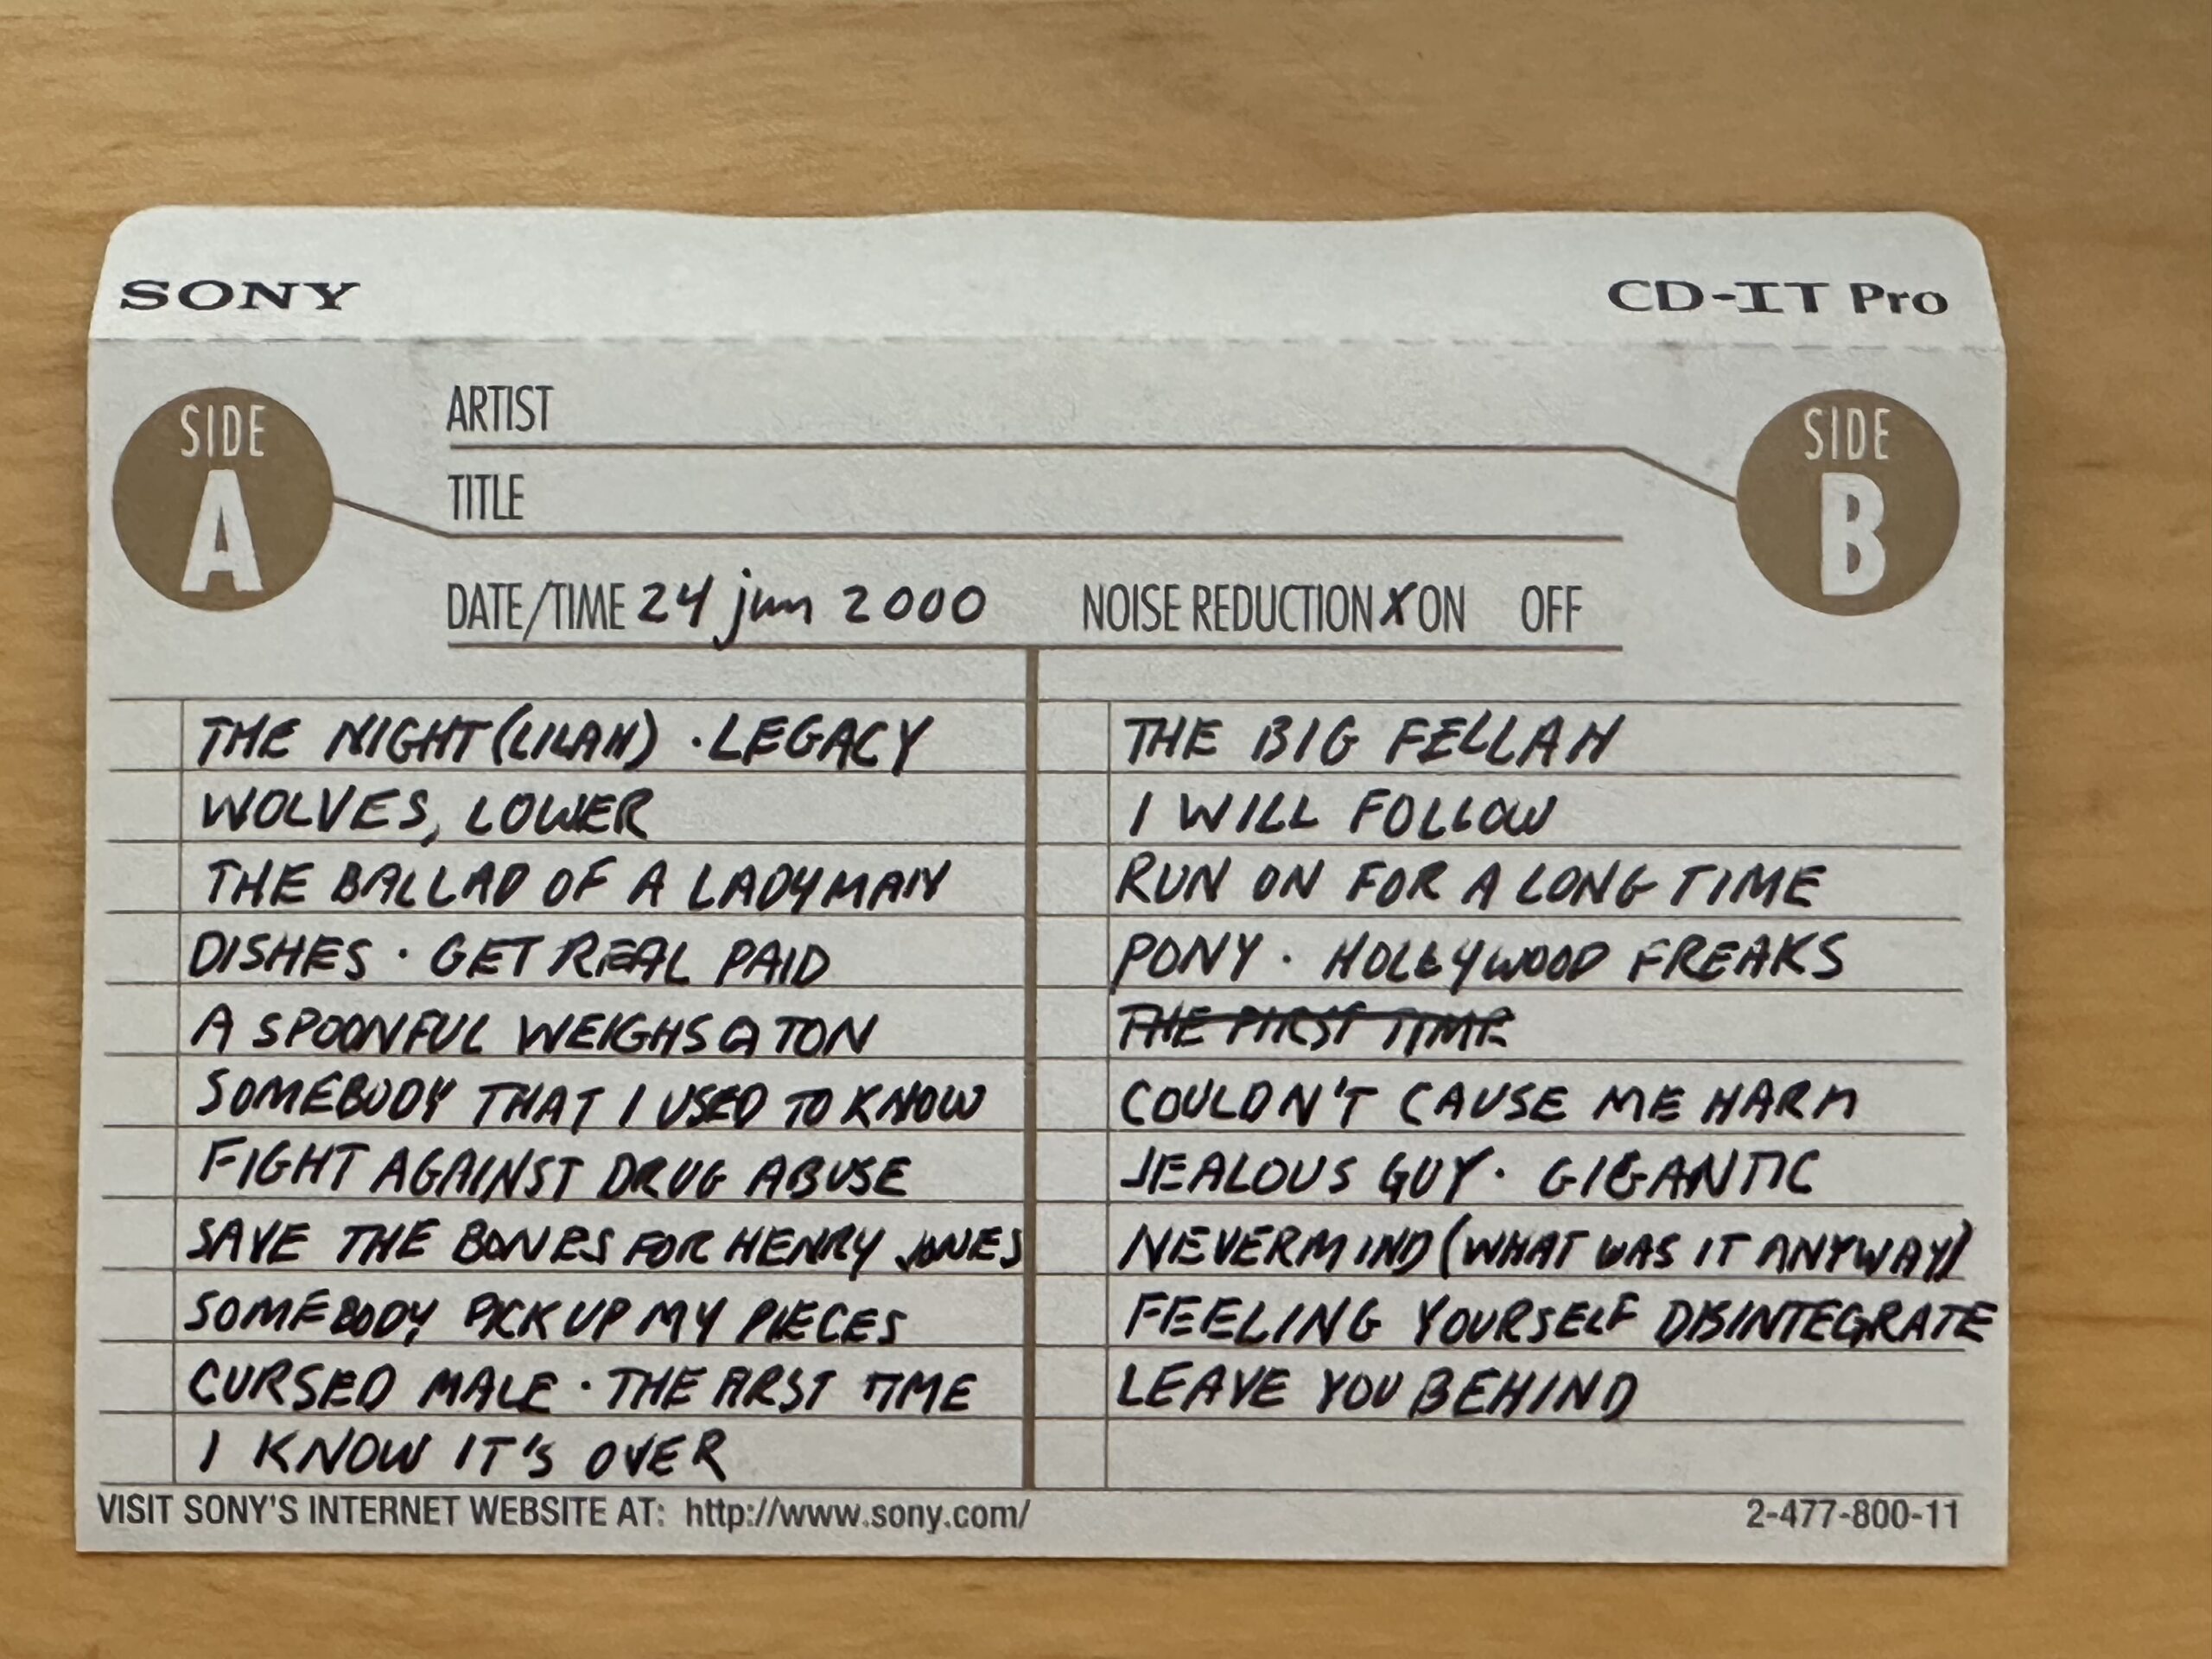 SONY CD-IT Pro
SIDE A
ARTIST
TITLE
DATE/TIME 24 jun 2000 NOISE REDUCTION X ON OFF
SIDE B
THE NIGHT (LILAH) · LEGACY
WOLVES, LOWER
THE BALLAD OF A LADYMAN
DISHES · GET REAL PAID
A SPOONFUL WEIGHS A TON
SOMEBODY THAT I USED TO KNOW
FIGHT AGAINST DRUG ABUSE
SAVE THE BONES FOR HENRY JONES
SOMEBODY PICK UP MY PIECES
CURSED MALE · THE FIRST TIME
I KNOW IT'S OVER
THE BIG FELLAH
I WILL FOLLOW
RUN ON FOR A LONG TIME
PONY · HOLLYWOOD FREAKS
THE FIRST TIME
COULDN'T CAUSE ME HARM
JEALOUS GUY · GIGANTIC
NEVERMIND (WHAT WAS IT ANYWAY)
FEELING YOURSELF DISINTEGRATE
LEAVE YOU BEHIND
VISIT SONY'S INTERNET WEBSITE AT: http://www.sony.com/ 2-477-800-11